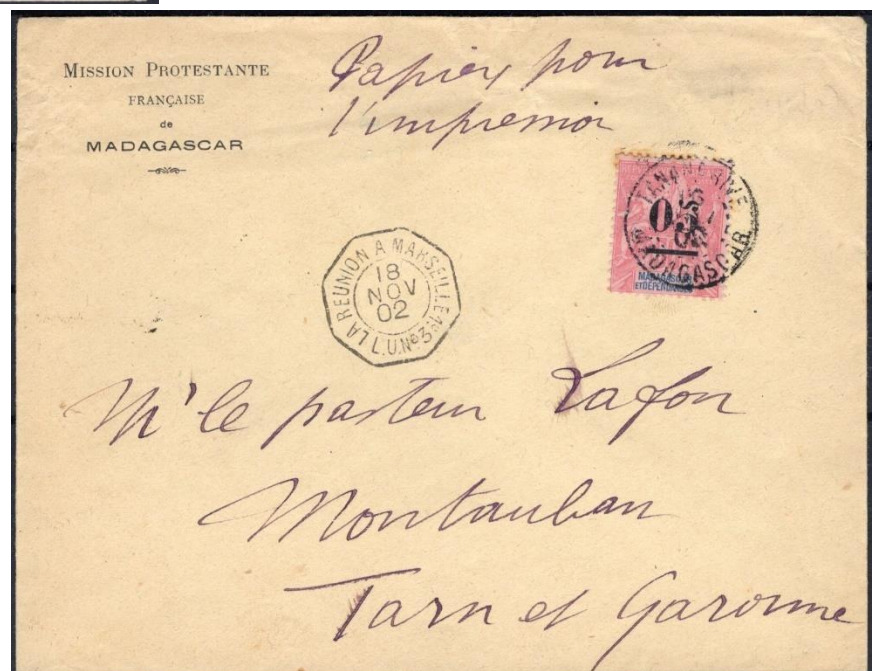 MISSION PROTESTANTE
FRANÇAISE
de
MADAGASCAR
Papiers pour
l'impression
TANANARIVE
MADAGASCAR
05
MADAGASCAR
ET DÉPENDANCES
LA REUNION A MARSEILLE
18
NOV
02
L.U.Nº3
Mr le pasteur Lafon
Montauban
Tarn et Garonne